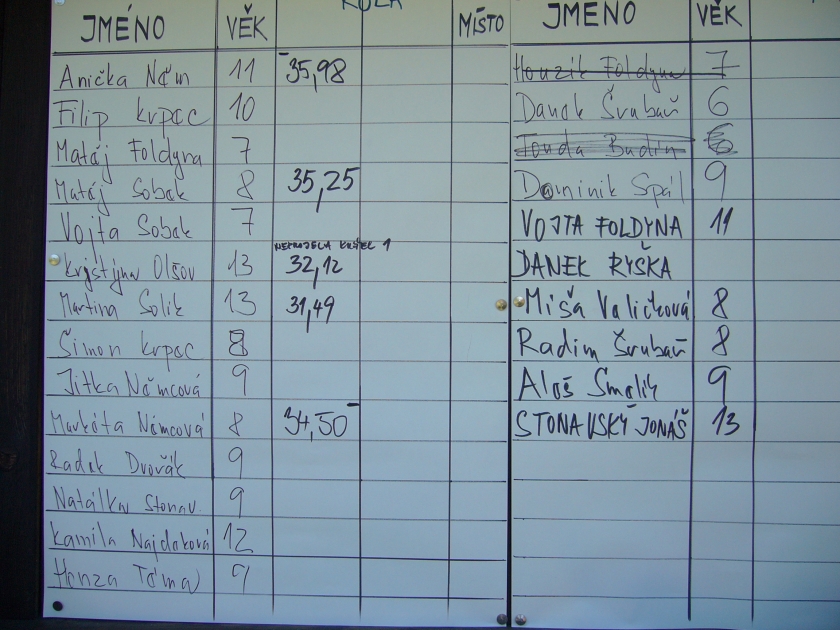 JMÉNO VĚK KOLA MÍSTO
Anička Ném 11 35,98
Filip Krpec 10
Matěj Foldyna 7
Matěj Sobek 8 35,25
Vojta Sobek 7
Kristýna Olšov 13 32,12
Martina Solik 13 31,49
Šimon Krpec 8
Jitka Němcová 9
Markéta Němcová 8 34,50
Radek Dvořák 9
Natálka Stonav. 9
Kamila Najdeková 12
Honza Tóma 9
JMENO VĚK
Honzik Foldyna 7
Danek Šrubař 6
Tonda Budin 6
Dominik Spál 9
VOJTA FOLDYNA 11
DANEK RYŠKA
Míša Valíčková 8
Radim Šrubař 8
Aleš Smolik 9
STONAVSKÝ JONÁŠ 13